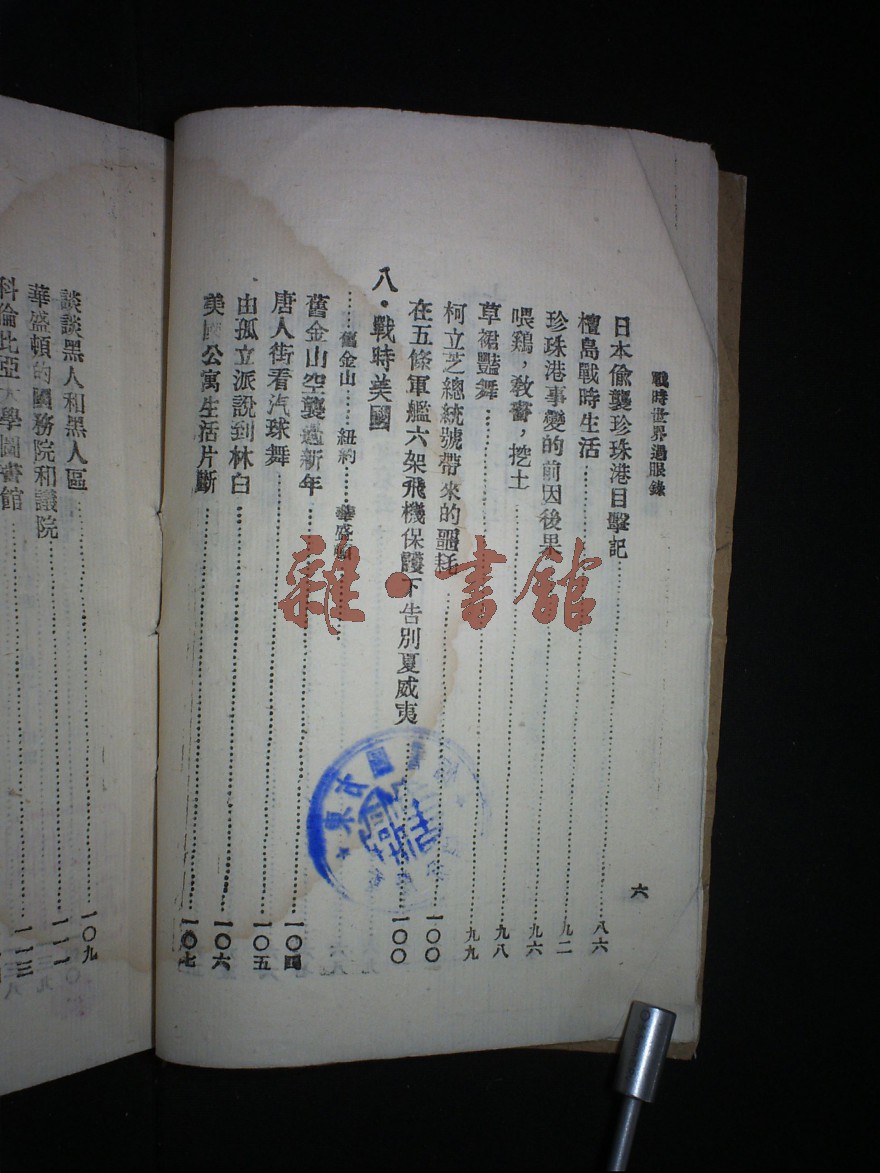 戰時世界過眼錄
六
日本偸襲珍珠港目擊記……八六
檀島戰時生活……九二
珍珠港事變的前因後果……九六
喂鷄，敎書，挖土……九八
草裙豔舞……九九
柯立芝總統號帶來的噩耗……一〇〇
在五條軍艦六架飛機保護下告別夏威夷……一〇〇
八・戰時美國
……舊金山……紐約……華盛頓……
舊金山空襲過新年……一〇四
唐人街看汽球舞……一〇五
由孤立派說到林白……一〇六
美國公寓生活片斷……一〇七
談談黑人和黑人區……一〇九
華盛頓的國務院和議院……一一一
科倫比亞大學圖書館……一一三
雜・書館